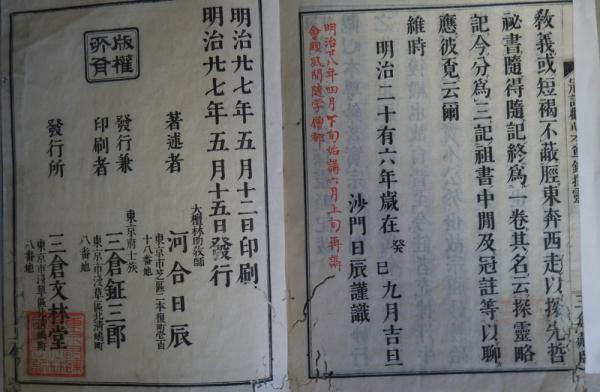 敎義或短褐不蔽脛東奔西走以探先哲
祕書隨得隨記終爲一卷其名云探靈略
記今分爲三記祖書中間及冠註等以聊
應彼覓云爾
維時
明治二十有六年歲在癸巳九月吉旦
沙門日辰謹識
明治廿八年四月下旬始講六月上旬再講
明治廿七年五月十二日印刷
明治廿七年五月十五日發行
版權所有
大檀林助敎師
著述者 河合日辰
東京市芝區二本榎町壹百
十八番地
發行兼
印刷者
東京府士族
三倉鉦三郎
東京市淺草區北淸嶋町
八番地
發行所 三倉文林堂
東京市淺草區北淸嶋町
八番地